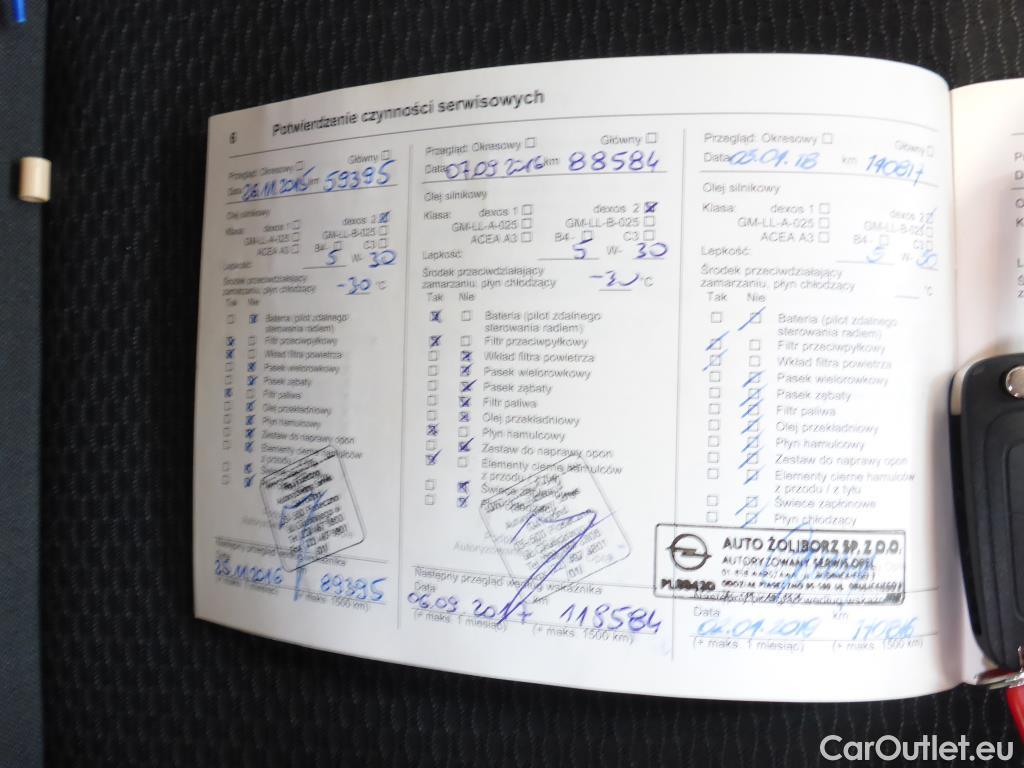 6 Potwierdzenie czynności serwisowych
Przegląd: Okresowy Główny
Data 26.11.2015 km 59395
Olej silnikowy
Klasa: dexos 1 dexos 2
GM-LL-A-025 GM-LL-B-025
ACEA A3 B4- C3
Lepkość: 5 W- 30
Środek przeciwdziałający
zamarzaniu, płyn chłodzący -30 °C
Tak Nie
Bateria (pilot zdalnego
sterowania radiem)
Filtr przeciwpyłkowy
Wkład filtra powietrza
Pasek wielorowkowy
Pasek zębaty
Filtr paliwa
Olej przekładniowy
Płyn hamulcowy
Zestaw do naprawy opon
Elementy cierne hamulców
z przodu
Następny przegląd według wskaźnika
Data km
25.11.2016 89395
(+ maks. 1 miesiąc) (+ maks. 1500 km)
Przegląd: Okresowy Główny
Data 07.09.2016 km 88584
Olej silnikowy
Klasa: dexos 1 dexos 2
GM-LL-A-025 GM-LL-B-025
ACEA A3 B4- C3
Lepkość: 5 W- 30
Środek przeciwdziałający
zamarzaniu, płyn chłodzący -30 °C
Tak Nie
Bateria (pilot zdalnego
sterowania radiem)
Filtr przeciwpyłkowy
Wkład filtra powietrza
Pasek wielorowkowy
Pasek zębaty
Filtr paliwa
Olej przekładniowy
Płyn hamulcowy
Zestaw do naprawy opon
Elementy cierne hamulców
z przodu / z tyłu
Świece zapłonowe
Płyn chłodzący
Następny przegląd według wskaźnika
Data km
06.09.2017 118584
(+ maks. 1 miesiąc) (+ maks. 1500 km)
Przegląd: Okresowy Główny
Data km
Olej silnikowy
Klasa: dexos 1 dexos 2
GM-LL-A-025 GM-LL-B-025
ACEA A3 B4- C3
Lepkość: 5 W- 30
Środek przeciwdziałający
zamarzaniu, płyn chłodzący °C
Tak Nie
Bateria (pilot zdalnego
sterowania radiem)
Filtr przeciwpyłkowy
Wkład filtra powietrza
Pasek wielorowkowy
Pasek zębaty
Filtr paliwa
Olej przekładniowy
Płyn hamulcowy
Zestaw do naprawy opon
Elementy cierne hamulców
z przodu / z tyłu
Świece zapłonowe
Płyn chłodzący
AUTO ŻOLIBORZ SP. Z O.O.
AUTORYZOWANY SERWIS OPEL
Następny przegląd według
Data km
(+ maks. 1 miesiąc) (+ maks. 1500 km)
CarOutlet.eu